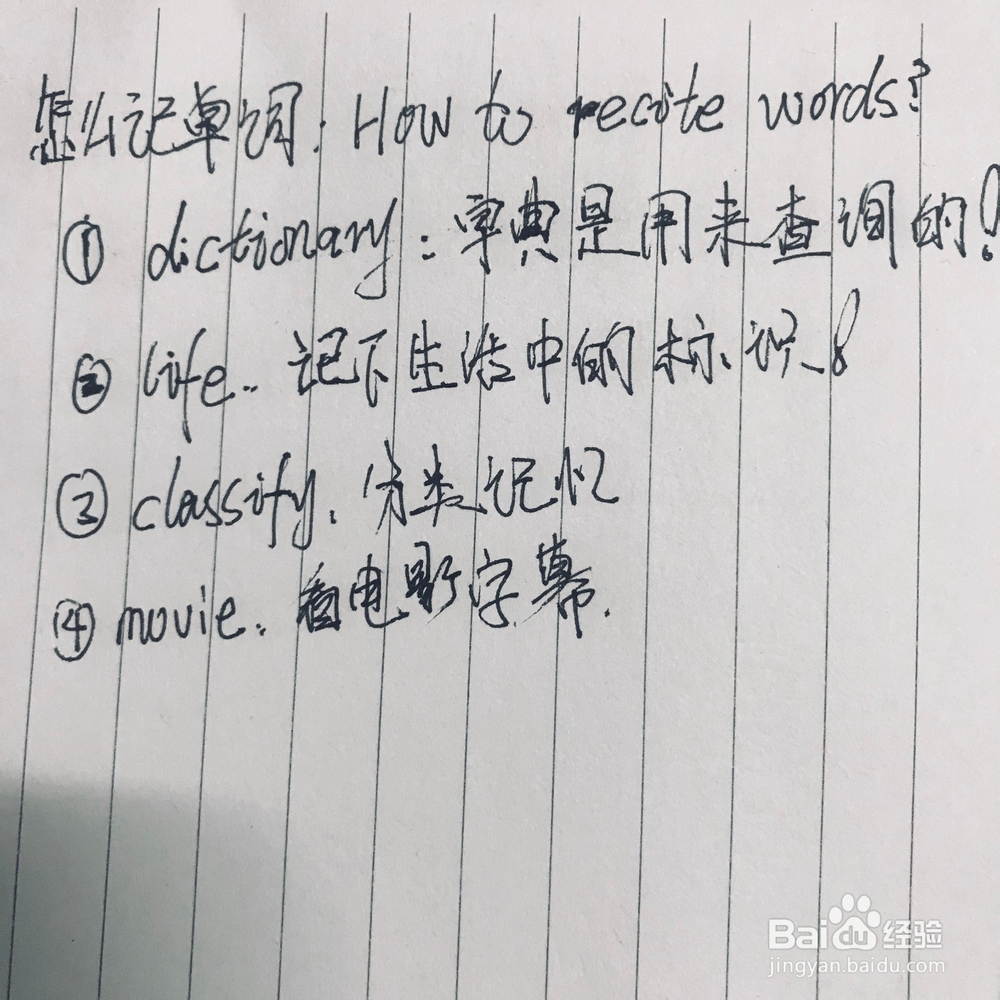 怎么记单词: How to recite words?
① dictionary: 字典是用来查询的!
② life.. 记下生活中的标识!
③ classify. 分类记忆
④ movie. 看电影字幕.
Baidu经验
jingyan.baidu.com